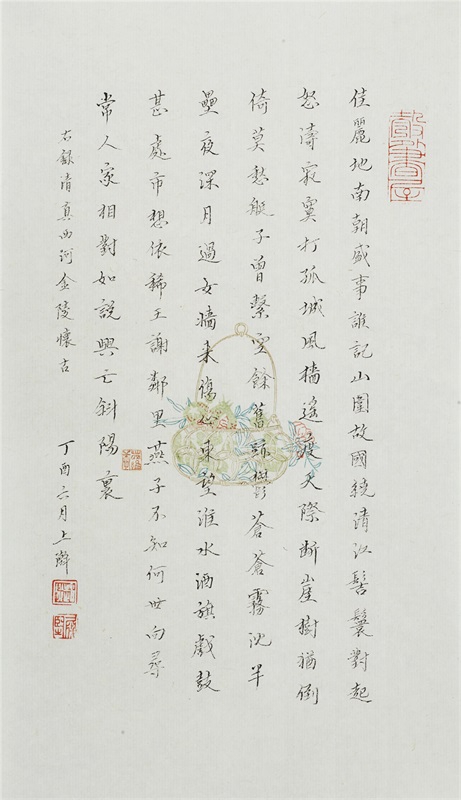 佳麗地南朝盛事誰記山圍故國繞清江髻鬟對起
怒濤寂寞打孤城風檣遙度天際断崖樹猶倒
倚莫愁艇子曾繫空餘舊跡鬱蒼蒼霧沈半
壘夜深月過女牆来傷心東望淮水酒旗戲鼓
甚處市想依稀王謝鄰里燕子不知何世向尋
常人家相對如說興亡斜陽裏
右錄清真西河金陵懷古
丁酉六月上澣